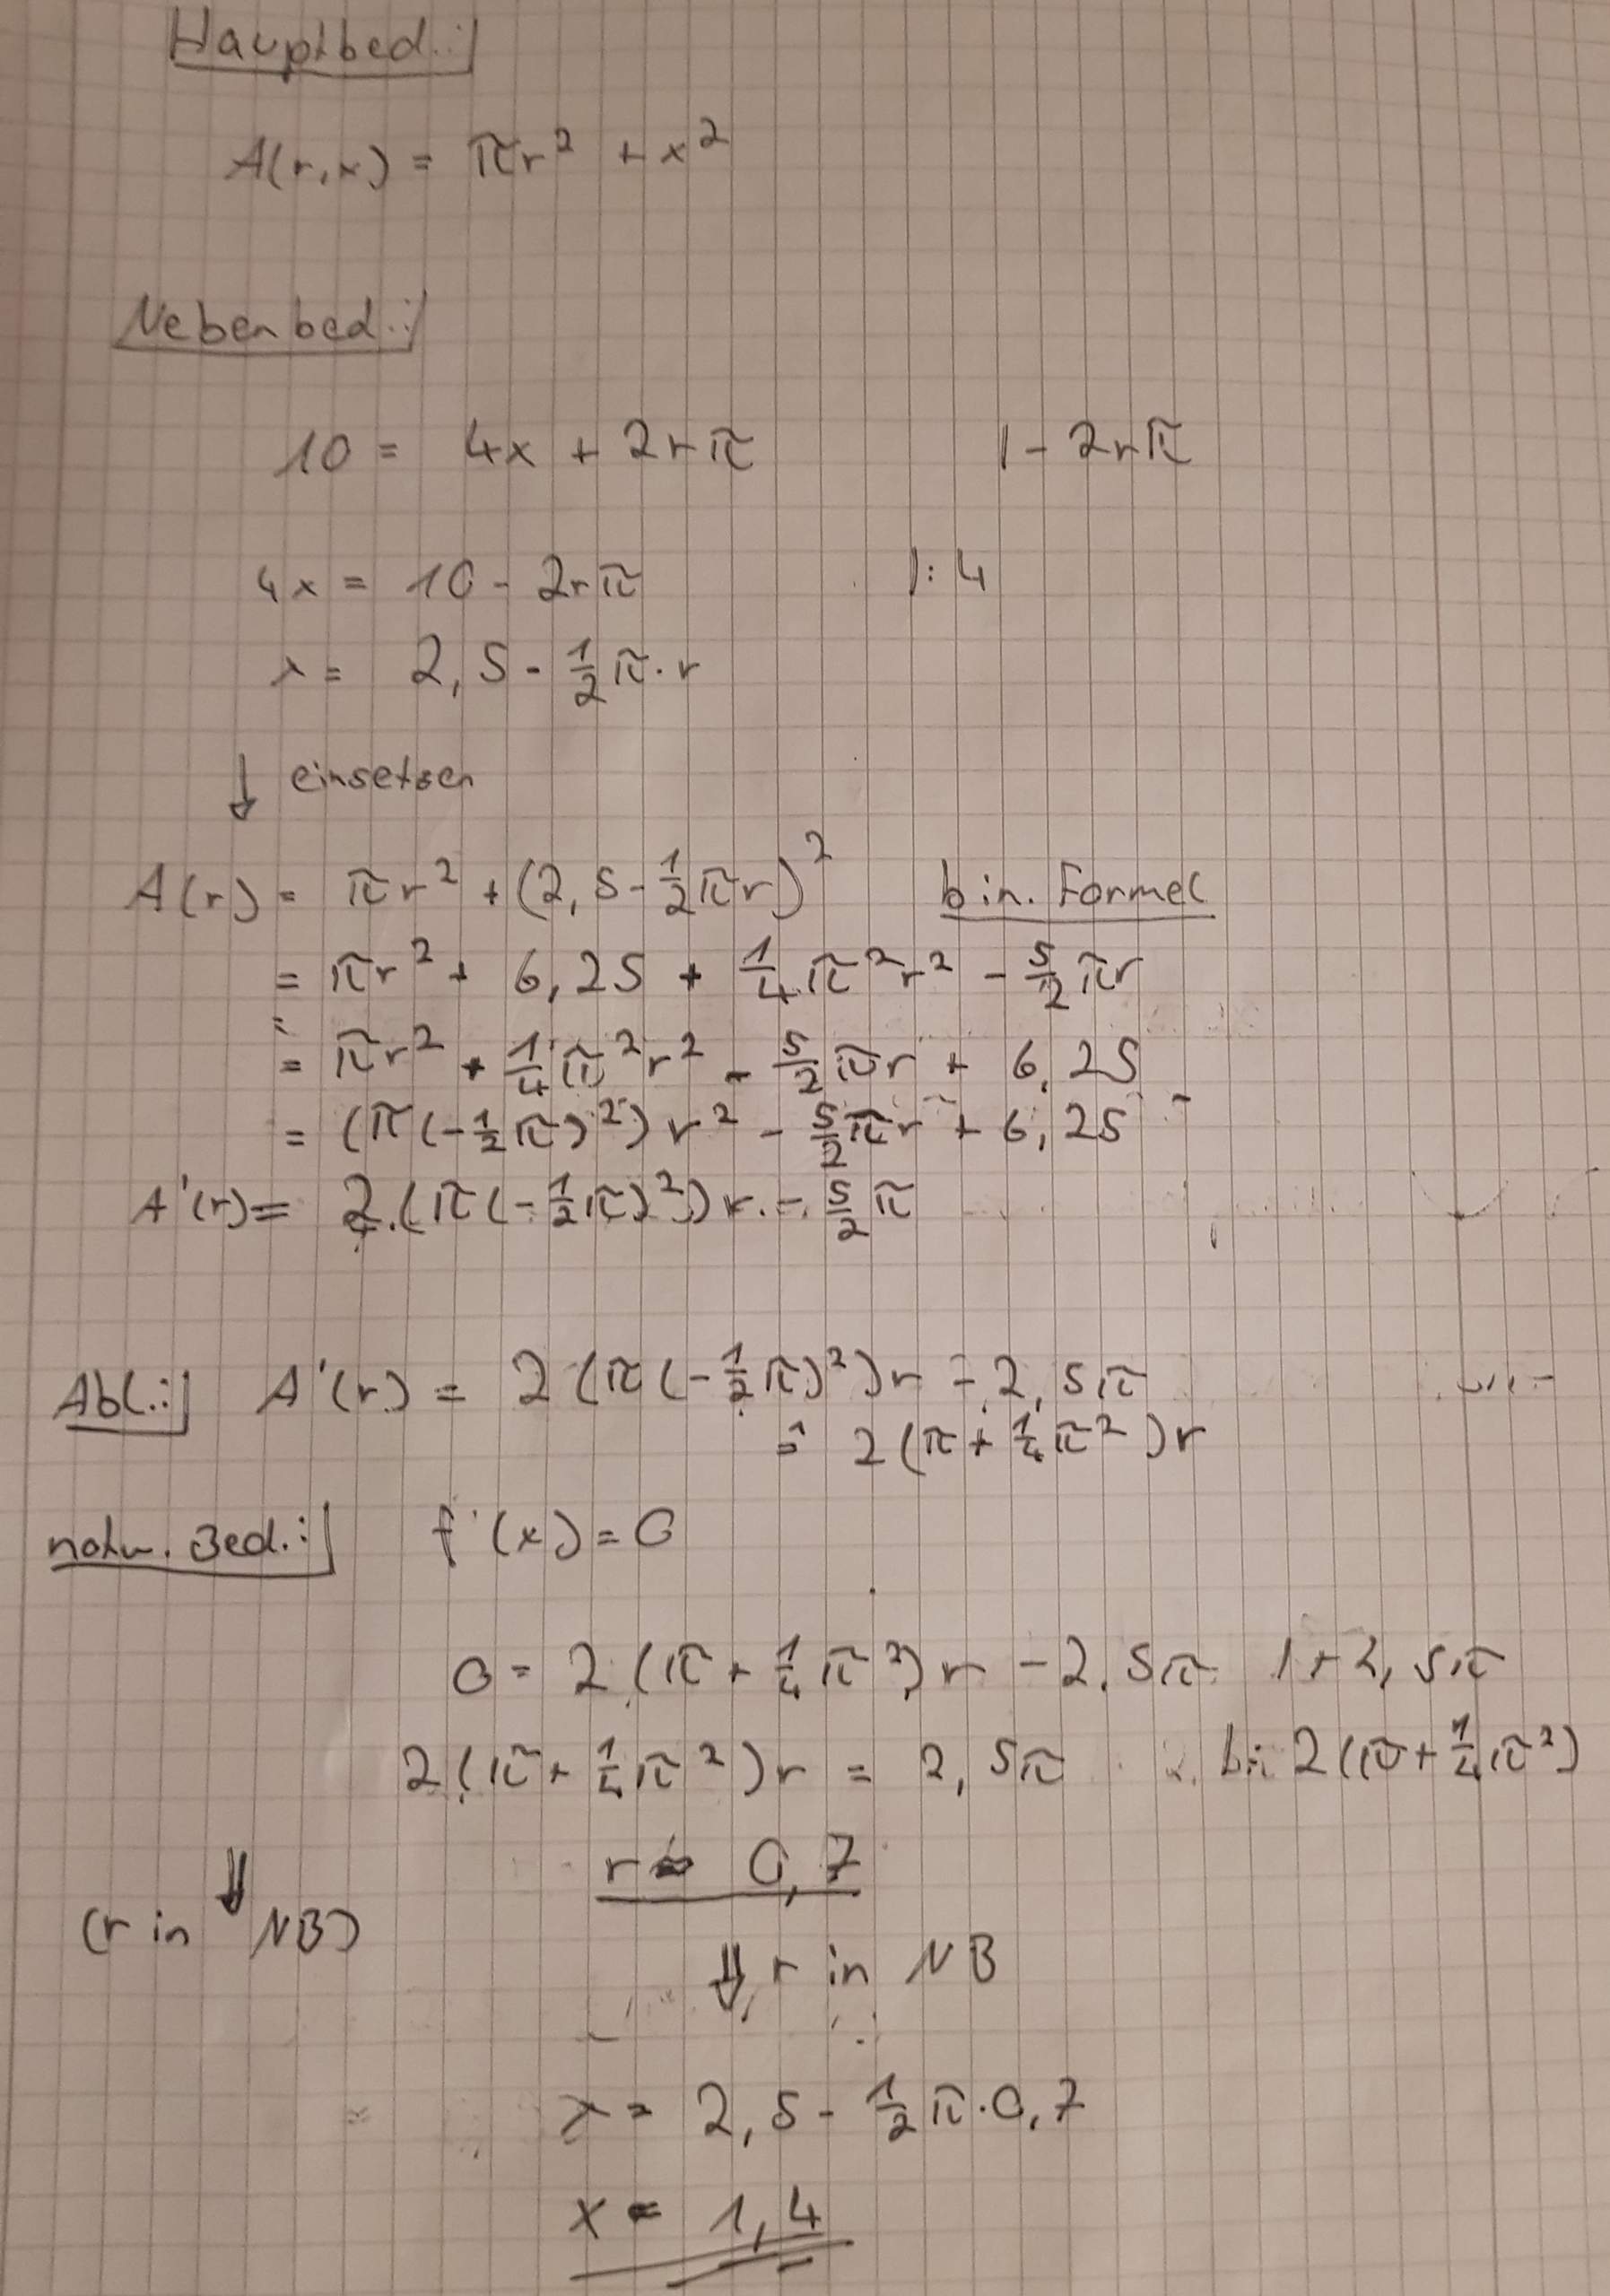 Hauptbed.:
A(r,x) = πr² + x²
Nebenbed.:
10 = 4x + 2rπ |- 2rπ
4x = 10 - 2rπ |: 4
x = 2,5 - 1/2 π · r
↓ einsetzen
A(r) = πr² + (2,5 - 1/2 πr)² bin. Formel
= πr² + 6,25 + 1/4 π²r² - 5/2 πr
= πr² + 1/4 π²r² - 5/2 πr + 6,25
= (π(-1/2 π)²)r² - 5/2 πr + 6,25
A'(r) = 2·(π(-1/2 π)²)r - 5/2 π
Abl.: A'(r) = 2(π(-1/2 π)²)r - 2,5π
= 2(π + 1/4 π²)r
notw. Bed.: f'(x) = 0
0 = 2(π + 1/4 π²)r - 2,5π |+ 2,5π
2(π + 1/4 π²)r = 2,5π |: 2(π + 1/4 π²)
r ≈ 0,7
(r in ⇓ NB)
⇓ r in NB
x = 2,5 - 1/2 π · 0,7
x = 1,4